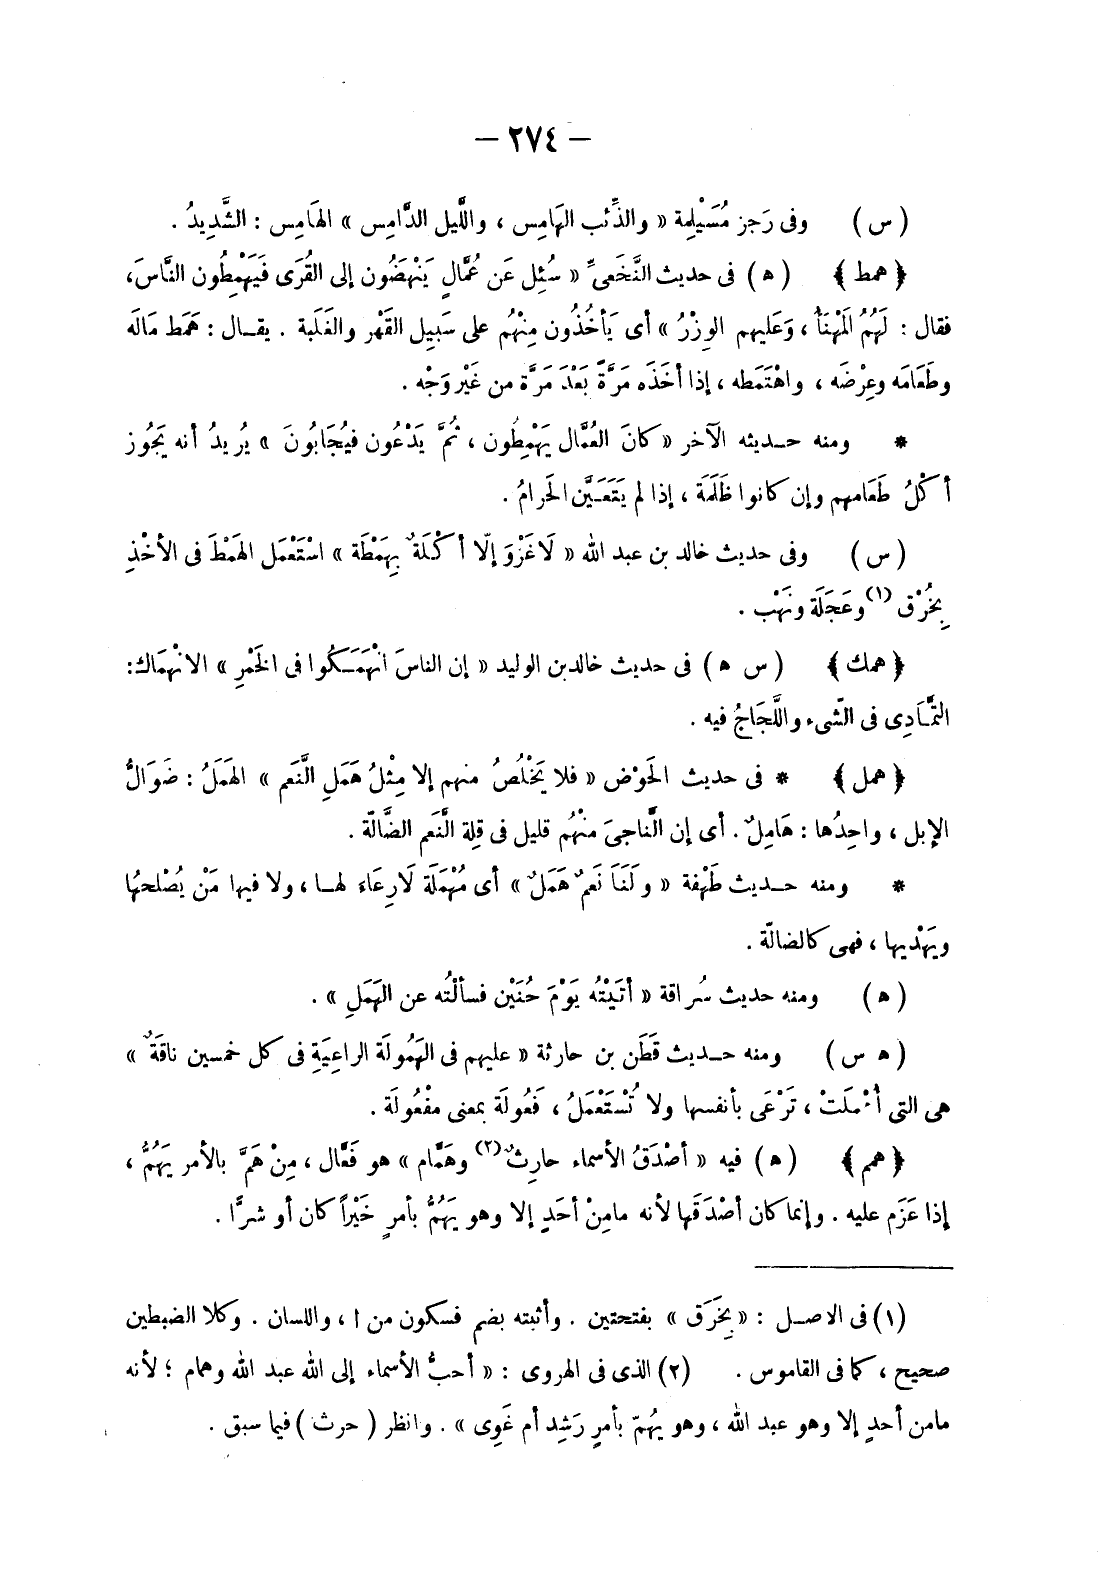 – ٢٧٤ –
( س ) وفى رَجز مُسَيْلِمة « والذِّئب الهَامِس ، واللَّيل الدَّامِس » الهَامِس : الشَّدِيدُ .
﴿ همط ﴾ ( ه ) فى حديث النَّخَعىِّ « سُئِل عَن عُمَّالٍ يَنْهَضُون إلى القُرَى فَيَهْمِطُون النَّاسَ،
فقال : لَهُمُ المَهْنَأُ ، وَعَليهم الوِزْرُ » أى يَأخُذُون مِنْهُم على سَبِيل القَهْر والغَلَبة . يقـال : هَمَط مَالَه
وطَعَامَه وعِرْضَه ، واهْتَمَطه ، إذا أخَذَه مَرَّةً بَعْدَ مَرَّة من غَيْر وَجْه .
* ومنه حـديثه الآخر « كانَ العُمَّال يَهْمِطُون ، ثُمَّ يَدْعُون فيُجَابُونَ » يُريدُ أنه يَجُوز
أكْلُ طَعَامهم وإن كانوا ظَلَمَة ، إذا لم يَتَعَـيَّن الحَرامُ .
( س ) وفى حديث خالد بن عبد الله « لَا غَزْوَ إلّا أكْلَةٌ بِهَمْطَة » اسْتَعْمَل الهَمْطَ فى الأخْذِ
بِخُرْق (١) وعَجَلَة ونَهْب .
﴿ همك ﴾ ( س ه ) فى حديث خالدبن الوليد « إن الناسَ انْهَمَـكُوا فى الخَمْرِ » الانْهِمَاك:
التَّمَـادِى فى الشّىء واللَّجَاجُ فيه .
﴿ همل ﴾ * فى حديث الحَوْض « فلا يَخْلُصُ منهم إلا مِثْلُ هَمَلِ النَّعَم » الهَمَلُ : ضَوَالُّ
الإبل ، واحِدُها : هَامِلٌ . أى إن النَّاجىَ منْهُم قليل فى قِلة النَّعَم الضَّالّة .
* ومنه حـديث طَهْفة « ولَنَا نَعَمٌ هَمَلٌ » أى مُهْمَلَة لَا رِعَاءَ لهـا ، ولا فيها مَنْ يُصْلحهُا
ويَهْديها ، فهى كالضالّة .
( ه ) ومنه حديث سُراقة « أتَيْتُه يَوْمَ حُنَيْن فسألْتُه عن الهَمَلِ » .
( ه س ) ومنه حـديث قَطَن بن حارثة « عليهم فى الهَمُولَة الراعِيَةِ فى كل خمسين ناقَةٌ »
هى التى أُهْمَلَتْ ، تَرْعَى بأنفسها ولا تُسْتَعْمَلُ ، فَعُولَة بمعنى مفْعُولَة .
﴿ همم ﴾ ( ه ) فيه « أصْدَقُ الأسماء حارِثٌ (٢) وهَمَّام » هو فَعَّال ، مِنْ هَمَّ بالأمر يَهُمُّ ،
إذا عَزَم عليه . وإنما كان أصْدَقَها لأنه مامِنْ أحَدٍ إلا وهو يَهُمُّ بأمرٍ خَيْراً كان أو شرًّا .
(١) فى الاصـل : « بِخَرَق » بفتحتين . وأثبته بضم فسكون من ا ، واللسان . وكلا الضبطين
صحيح ، كما فى القاموس . (٢) الذى فى الهروى : « أحبُّ الأسماء إلى الله عبد الله وهمام ؛ لأنه
مامن أحدٍ إلا وهو عبد الله ، وهو يهُمّ بأمرٍ رَشِد أم غَوِى » . وانظر ( حرث ) فيما سبق .